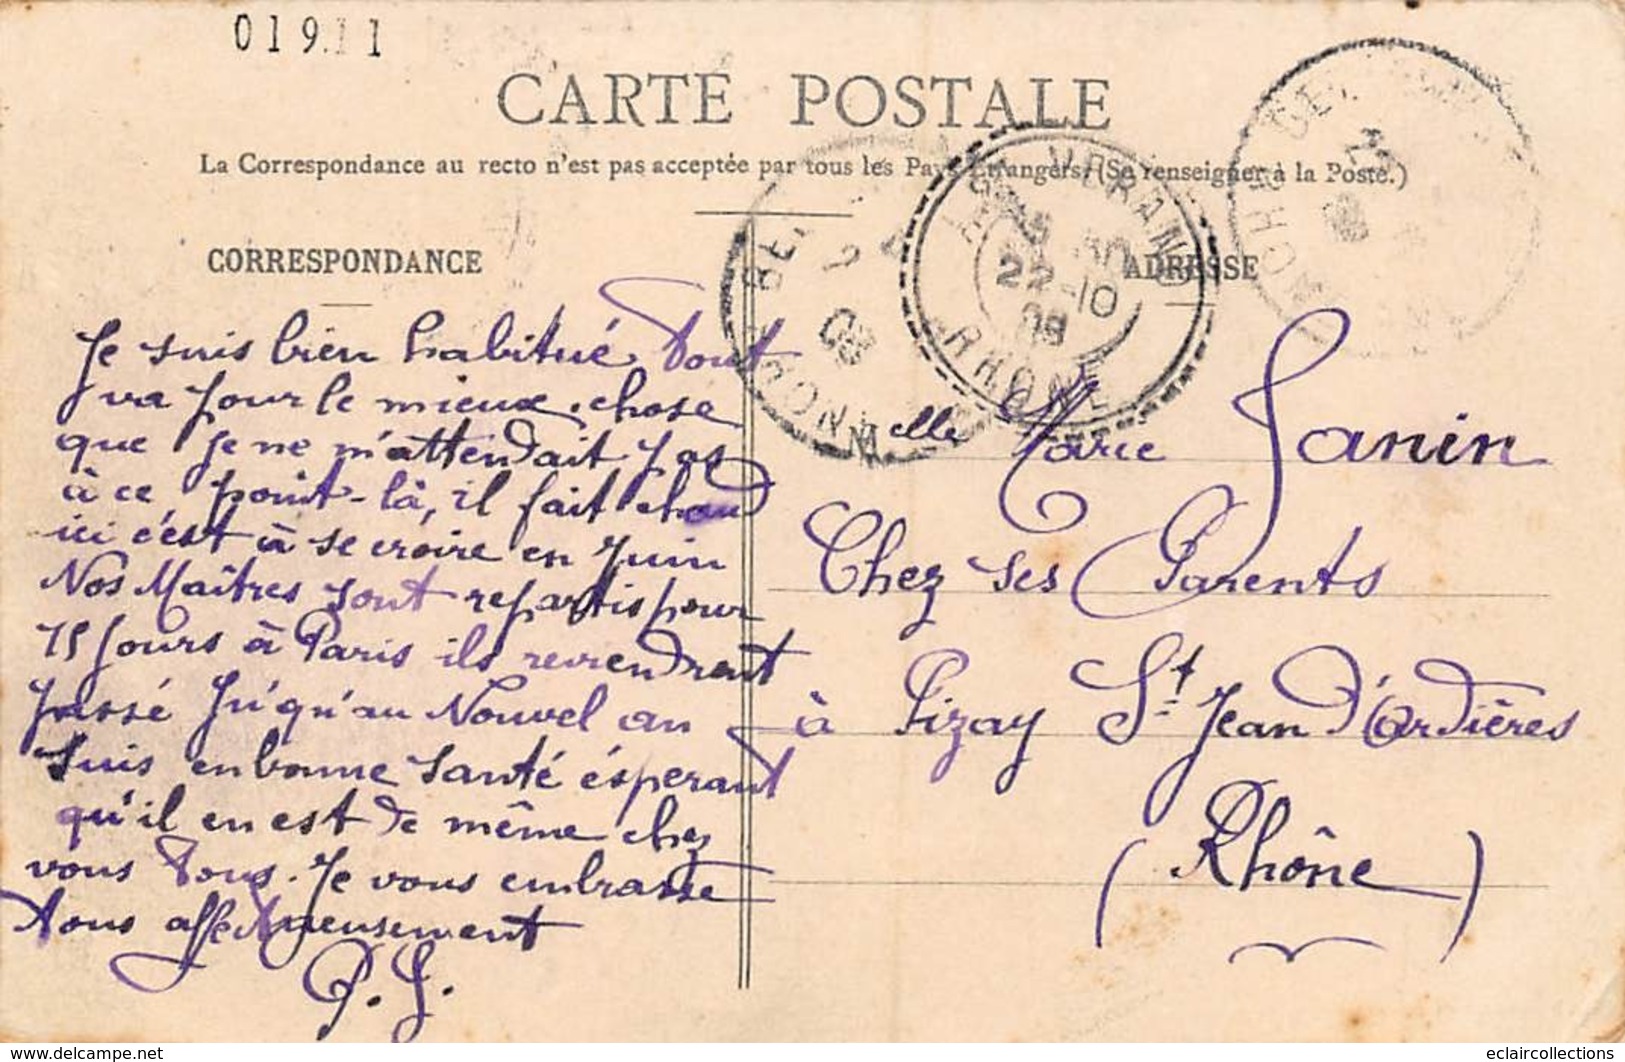 01911
CARTE POSTALE
La Correspondance au recto n'est pas acceptée par tous les Pays Etrangers. (Se renseigner à la Poste.)
CORRESPONDANCE
Je suis bien habitué. Tout
va pour le mieux. chose
que je ne m'attendait pas
à ce point-là, il fait chaud
ici c'est à se croire en Juin
Nos Maîtres sont repartis pour
15 jours à Paris ils reviendront
passé ju'qu'au Nouvel an
Suis en bonne santé éspérant
qu'il en est de même chez
vous Tous. Je vous embrasse
tous affectueusement
P. J.
ADRESSE
22-10
09
RHONE
Melle Marie Janin
Chez ses Parents
à Pizay St. Jean d'Ardières
(Rhône)
www.delcampe.net
eclaircollections